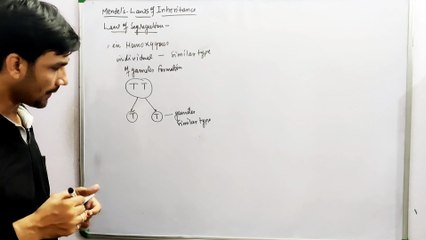 Mendel's Laws of Inheritance
Law of Segregation -
individual - similar type
of gametes formation
T T
T T - gametes
similar type